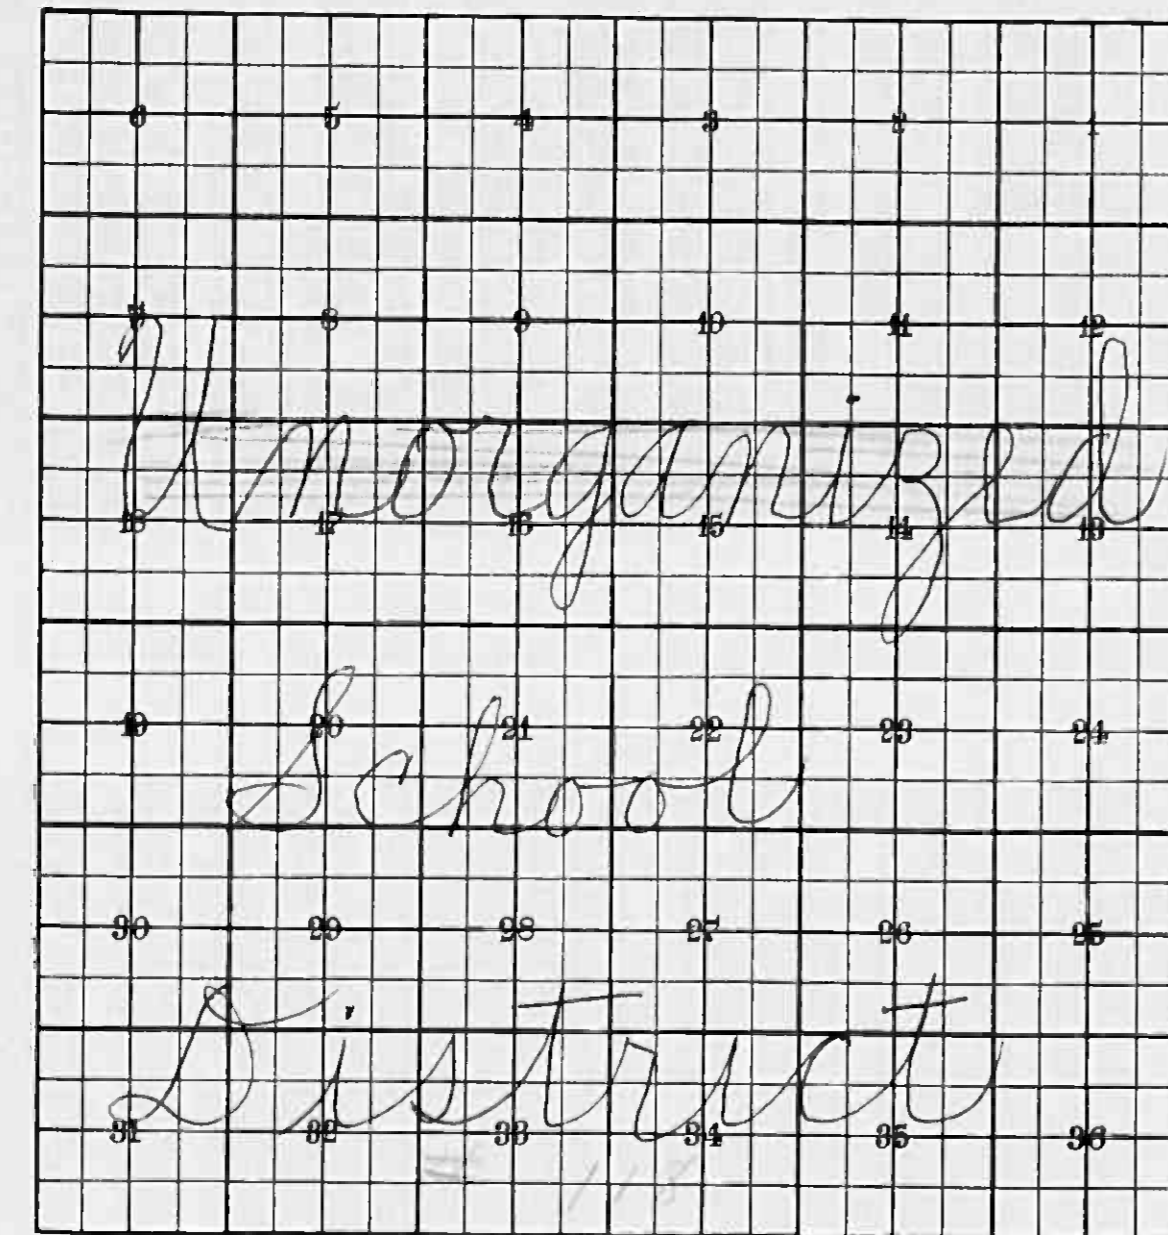 6 5 4 3 2 1
7 8 9 10 11 12
Unorganized
18 17 16 15 14 13
School
19 20 21 22 23 24
30 29 28 27 26 25
District
31 32 33 34 35 36
# 118